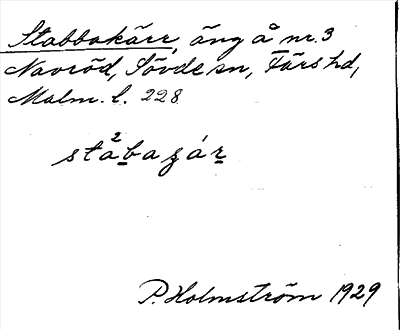 Stabbakärr, äng å nr. 3
Navröd, Sövde sn, Färs hd,
Malm. l. 228
P. Holmström 1929